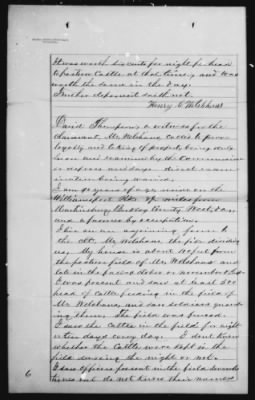 It was worth six cents for night per head
to pasture Cattle at that time, and was
worth the same in the day.
Further deponent saith not.
Henry Welshans
David Thompson a witness for the
claimant, Mr. Welshans, called to prove
loyalty and taking of property, being duly
sworn and examined by the Commission
or deposes and says: direct exam-
ination being waived
I am years of age reside on the
Williamsport Pike miles from
Martinsburg Berkley County West Va
and a farmer by occupation.
I live on an adjoining farm to
the Mr. Welshans, the pike dividing
us. My house is about feet from
the pasture field of Mr. Welshans and
late in the fall October or November
I was present and saw at least 500
head of Cattle feeding in the field of
Mr. Welshans, and saw soldiers guard-
ing them. The field was fenced.
I saw the Cattle in the field for eight
or ten days every day. I don't know
whether the Cattle were kept in the
field during the night or not.
I saw officers present in the field several
times but do not know their names
6